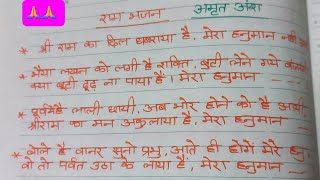 राम भजन अमृत अंश
* श्री राम का दिल घबराया है, मेरा हनुमान नहीं
* भैया लखन को लगी है शक्ति, बूटी लेने गये
क्या बूटी ढूंढ़ ना पाया है। मेरा हनुमान
* पूर्वमेंहै लाली छायी, अब भोर होने को है आयी
श्रीराम का मन अकुलाया है, मेरा हनुमान
* बोले है वानर सुनो प्रभु, आते ही होंगे मेरे
वो तो पर्वत उठा के लाया है, मेरा हनुमान